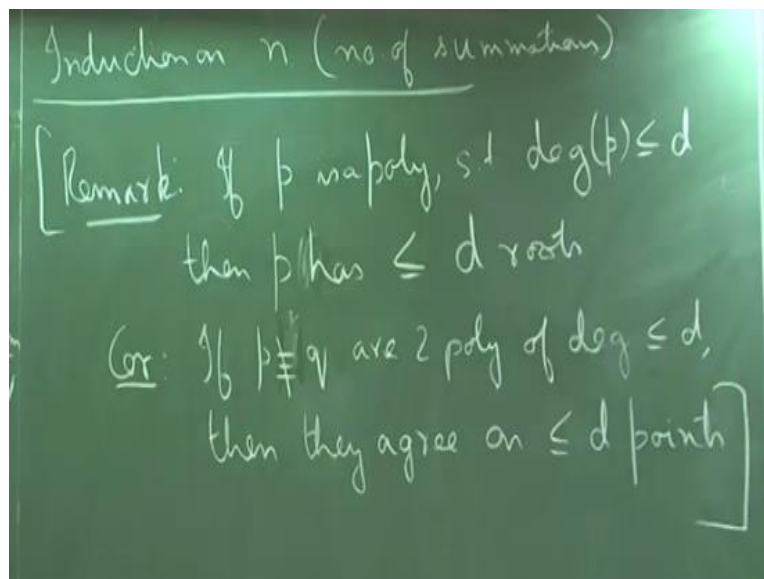 Induction on n (no. of summations)
[Remark: If p is a poly, s.t deg(p) ≤ d
then p has ≤ d roots
Cor: If p ≢ q are 2 poly of deg ≤ d,
then they agree on ≤ d points]